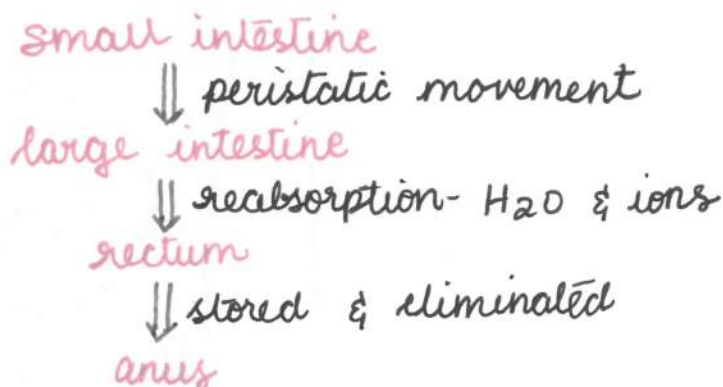 small intestine
⇓ peristatic movement
large intestine
⇓ reabsorption- H2O & ions
rectum
⇓ stored & eliminated
anus